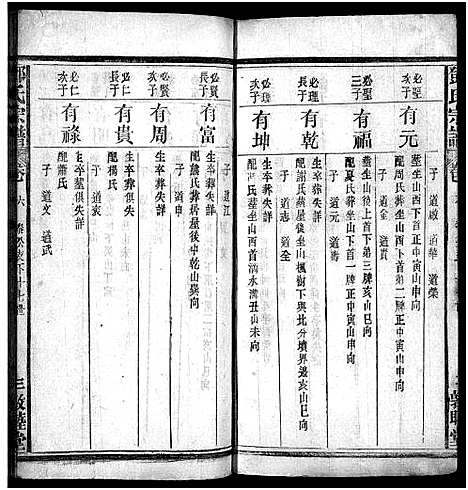 鄧氏宗譜
必聖次子
有元
墓坐山西下首正中寅山申向
配周氏墓坐山西下首第二牌正中寅山申向
子 道啟 道華 道榮
必聖三子
有福
墓坐山西後上首下第三牌亥山巳向
配夏氏葬坐山西下首一牌正中寅山申向
子 道金 道貴
必理長子
有乾
生卒葬失詳
配 氏葬坐山楓樹下與北分墳界 亥山巳向
子 道元 道壽
必理次子
有坤
生卒葬失詳
配馮氏葬坐山西首滴水溝丑山未向
子 道志 道全
必賢長子
有富
生卒葬失詳
配 氏葬居屋後中乾山巽向
子 道江
必賢次子
有周
生卒葬失詳
子 道申
必仁長子
有貴
生卒葬失詳
配楊氏
子 道亥
必仁次子
有祿
生卒墓俱失詳
配蕭氏
子 道文 道武
鄧氏宗譜
卷 六
三 堂